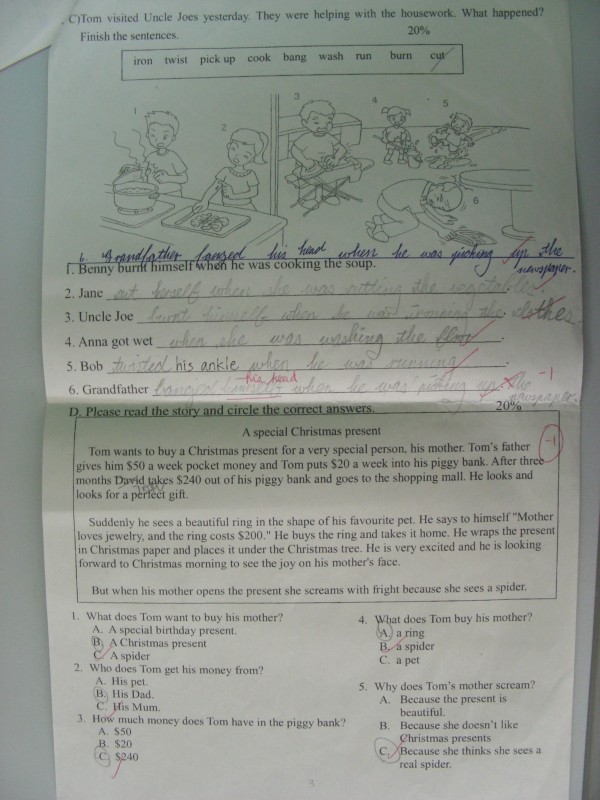 C)Tom visited Uncle Joes yesterday. They were helping with the housework. What happened?
Finish the sentences. 20%
iron twist pick up cook bang wash run burn cut
1
2
3
4
5
6
6. Grandfather banged his head when he was picking up the newspaper.
1. Benny burnt himself when he was cooking the soup.
2. Jane cut herself when she was cutting the vegetables.
3. Uncle Joe burnt himself when he was ironing the clothes.
4. Anna got wet when she was washing the floor.
5. Bob twisted his ankle when he was running.
his head -1
6. Grandfather banged himself when he was picking up the newspaper.
D. Please read the story and circle the correct answers. 20%
-1
A special Christmas present
Tom wants to buy a Christmas present for a very special person, his mother. Tom's father
gives him $50 a week pocket money and Tom puts $20 a week into his piggy bank. After three
months David takes $240 out of his piggy bank and goes to the shopping mall. He looks and
Tom
looks for a perfect gift.
Suddenly he sees a beautiful ring in the shape of his favourite pet. He says to himself "Mother
loves jewelry, and the ring costs $200." He buys the ring and takes it home. He wraps the present
in Christmas paper and places it under the Christmas tree. He is very excited and he is looking
forward to Christmas morning to see the joy on his mother's face.
But when his mother opens the present she screams with fright because she sees a spider.
1. What does Tom want to buy his mother?
A. A special birthday present.
B. A Christmas present
C. A spider
2. Who does Tom get his money from?
A. His pet.
B. His Dad.
C. His Mum.
3. How much money does Tom have in the piggy bank?
A. $50
B. $20
C. $240
4. What does Tom buy his mother?
A. a ring
B. a spider
C. a pet
5. Why does Tom's mother scream?
A. Because the present is
beautiful.
B. Because she doesn't like
Christmas presents
C. Because she thinks she sees a
real spider.
3